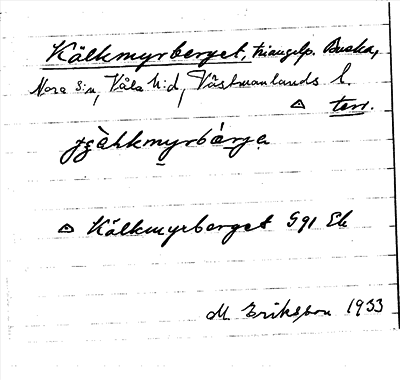 Kälkmyrberget, triangelp. Buska,
Nora s:n, Våla h:d, Västmanlands l.
terr.
Kälkmyrberget 591 Ek
M Eriksson 1933